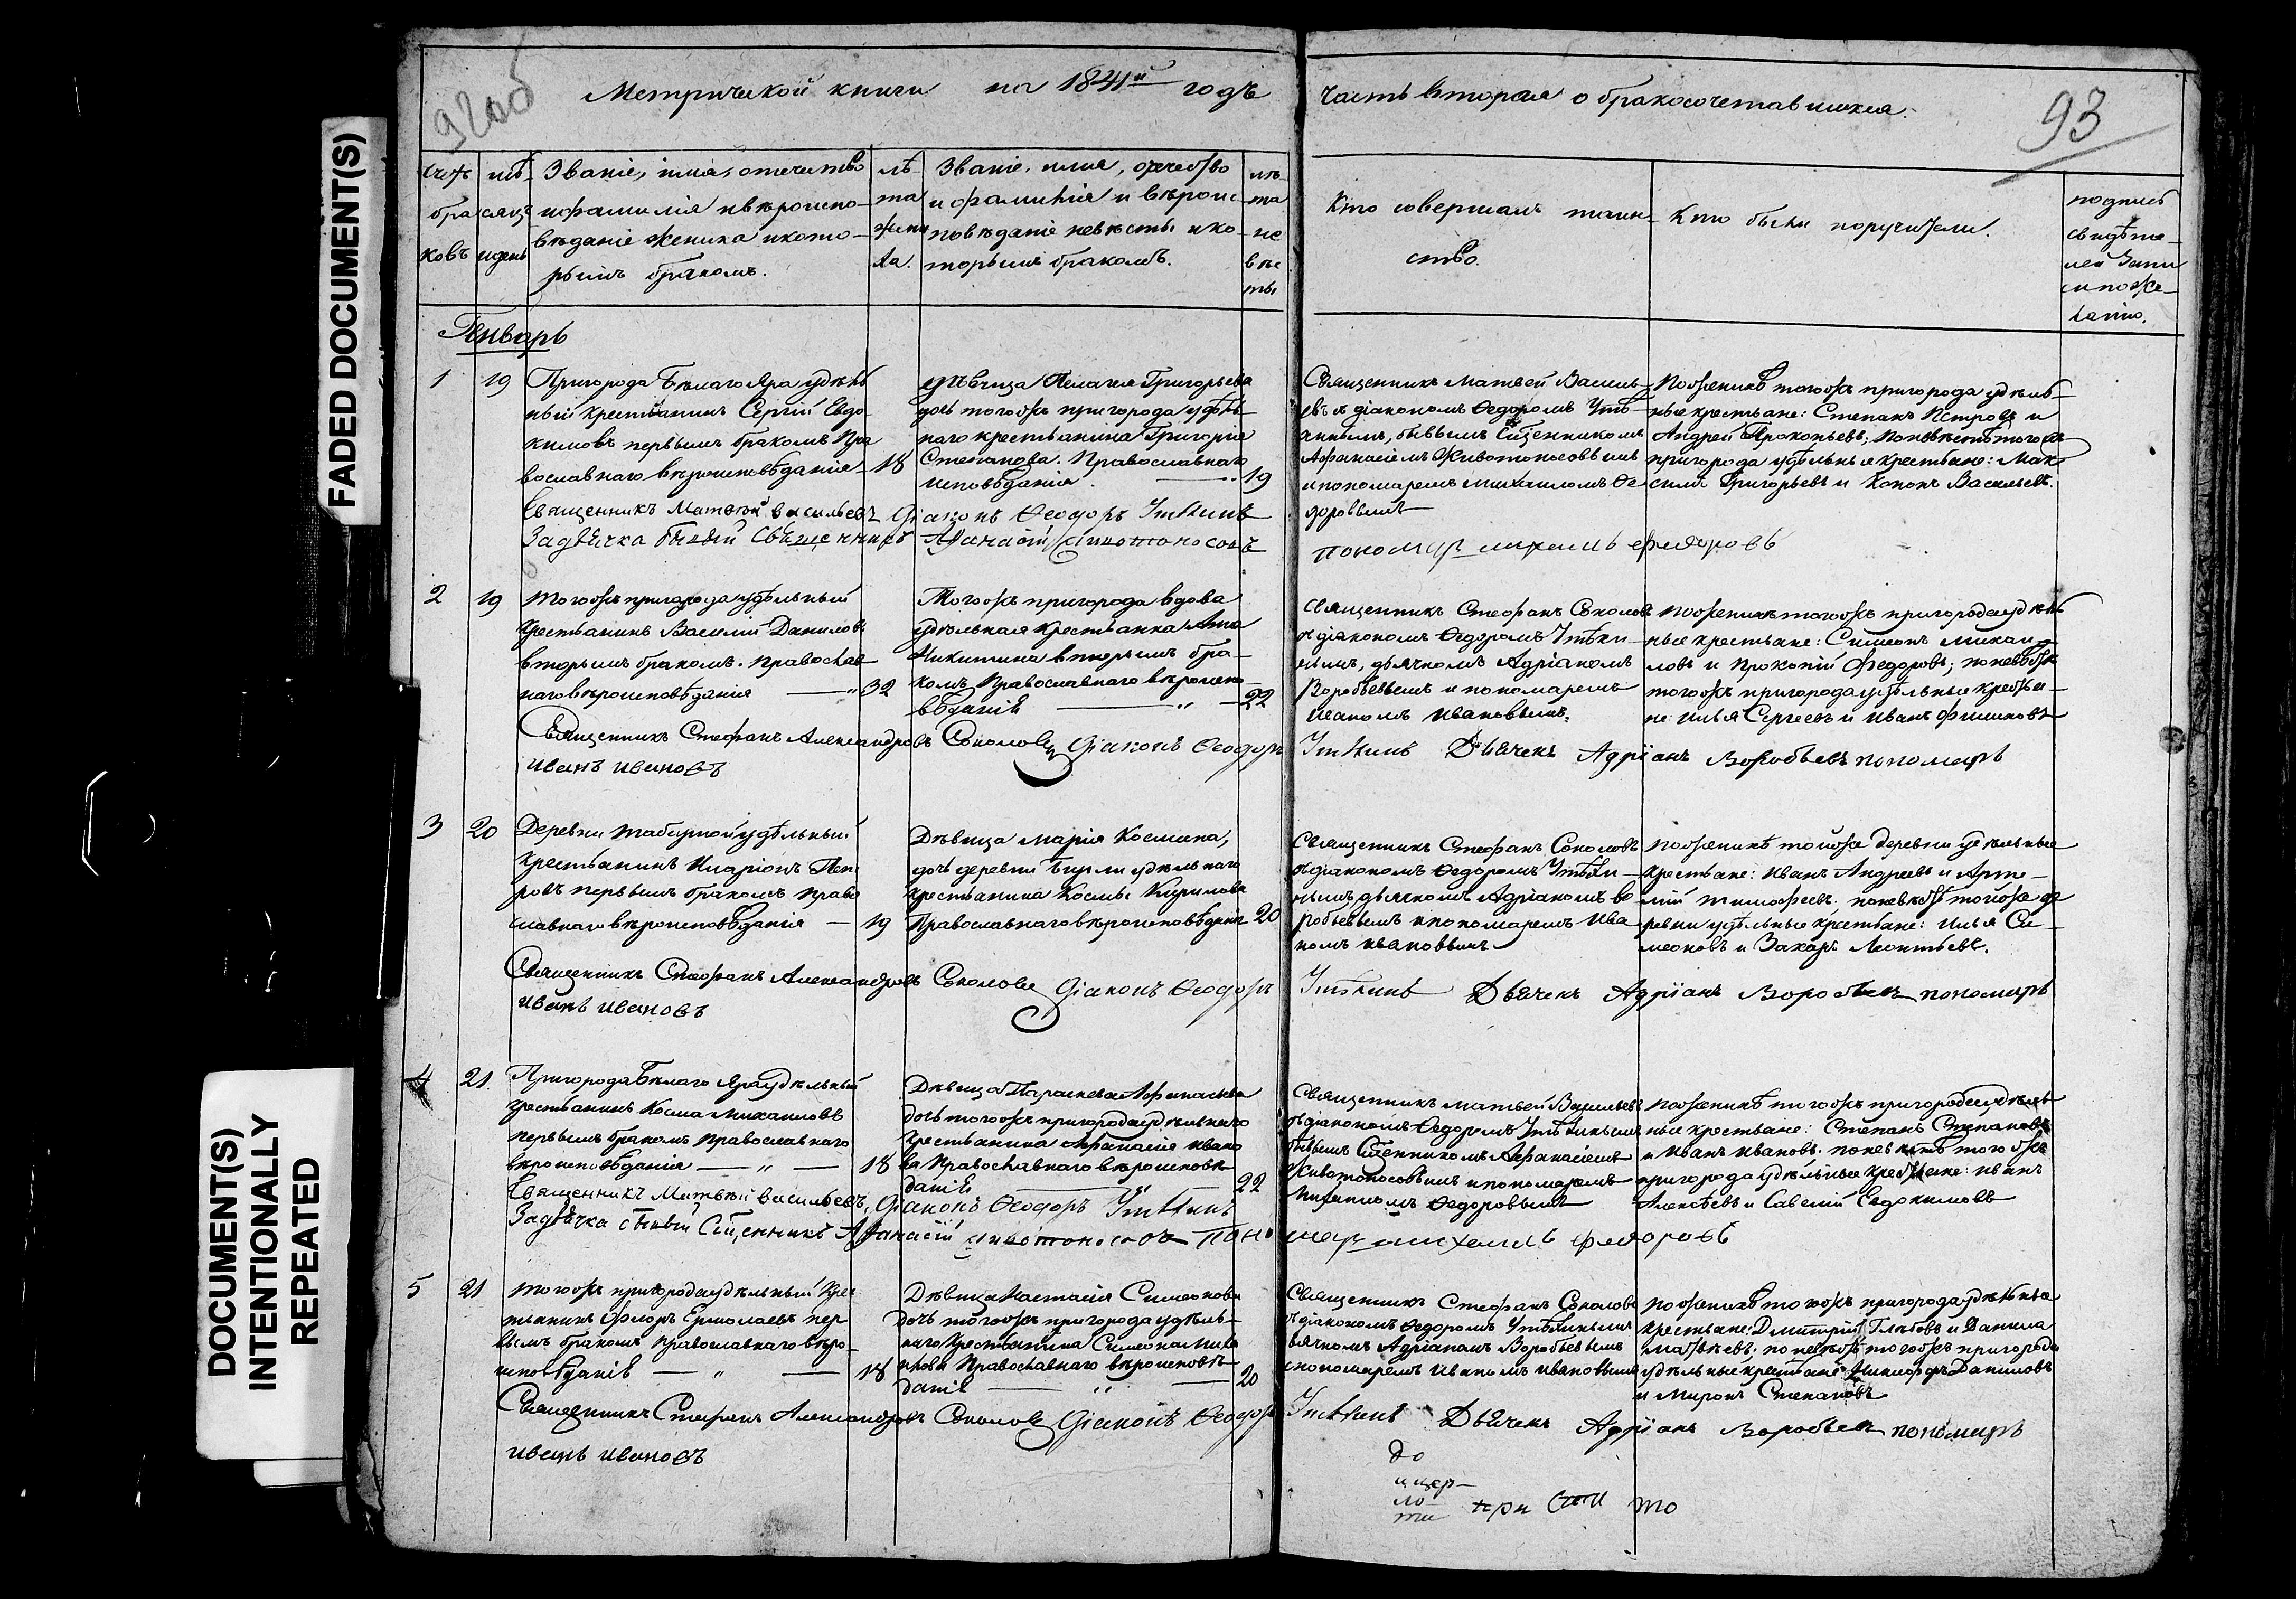 92 об
Метрической книги на 1841й годъ
часть вторая о бракосочетавшихся.
93
FADED DOCUMENT(S)
DOCUMENT(S)
INTENTIONALLY
REPEATED
счетъ браковъ
мѣсяцъ и день
Званіе, имя, отечество
и фамилія и вѣроиспо-
вѣданіе жениха и кото-
рымъ бракомъ.
лѣ-
та
жени
ха.
Званіе, имя, отечество
и фамилія и вѣроис-
повѣданіе невѣсты и ко-
торымъ бракомъ.
лѣ-
та
не
вѣс
ты
Кто совершалъ таин-
ство.
Кто были поручители.
подпись
свидѣте-
лей запи
си по же-
ланію.
Январь
1
19
Пригорода Бѣлаго Яра удѣль
ный крестьянинъ Сергій Евдо
кимовъ первымъ бракомъ Пра
вославнаго вѣроисповѣданія
18
дѣвица Пелагея Григорьева
дочь тогожъ пригорода удѣль-
наго крестьянина Григорія
Степанова. Православнаго
исповѣданія.
19
Священникъ Матвей Василь-
евъ съ діакономъ Ѳедоромъ Утѣ-
кинымъ, бывшимъ Сщенникомъ
Афанасіемъ Животоносовымъ
и пономаремъ Михаиломъ Ѳе-
доровымъ
По женихѣ тогожъ пригорода удѣль-
ные крестьяне: Степанъ Петровъ и
Андрей Прокопьевъ; по невѣстѣ тогожъ
пригорода удѣльные крестьяне: Мак
симъ Григорьевъ и Кононъ Васильевъ.
Священникъ Матвѣй Васильевъ Діаконъ Ѳеодоръ Утѣкинъ
За дьячка бывый Священникъ Афанасій Животоносовъ
пономарь михаилъ федоровъ
2
19
Тогожъ пригорода удѣльный
крестьянинъ Василій Даниловъ
вторымъ бракомъ. Православ
наго вѣроисповѣданія
32
Тогожъ пригорода вдова
удѣльная крестьянка Анна
Никитина вторымъ бра-
комъ Православнаго вѣроиспо-
вѣданія
22
Священникъ Стефанъ Соколовъ
съ діакономъ Ѳедоромъ Утѣки-
нымъ, дьячкомъ Адріаномъ
Воробьевымъ и пономаремъ
Иваномъ Ивановымъ.
По женихѣ тогожъ пригорода удѣль
ные крестьяне: Симеонъ Михаи-
ловъ и Прокопій Федоровъ; по невѣстѣ
тогожъ пригорода удѣльные крестья-
не: Илья Сергеевъ и Иванъ Филиповъ
Священникъ Стефанъ Александровъ Соколовъ Діаконъ Ѳеодоръ Утѣкинъ Дьячекъ Адріанъ Воробьевъ пономарь
иванъ ивановъ
3
20
Деревни Табурной удѣльный
крестьянинъ Иларіонъ Пет
ровъ первымъ бракомъ Право
славнаго вѣроисповѣданія
19
Дѣвица Марія Космина,
дочь деревни Бирли удѣльнаго
крестьянина Космы Кирилова
Православнаго вѣроисповѣданія
20
Священникъ Стефанъ Соколовъ
съ діакономъ Ѳедоромъ Утѣки-
нымъ, дьячкомъ Адріаномъ Во
робьевымъ и пономаремъ Ива-
номъ Ивановымъ
По женихѣ тойже деревни удѣльные
крестьяне: Иванъ Андреевъ и Арте-
мій Тимофеевъ. по невѣстѣ тойже де
ревни удѣльные крестьяне: Илья Си-
меоновъ и Захаръ Леонтьевъ.
Священникъ Стефанъ Александровъ Соколовъ Діаконъ Ѳеодоръ Утѣкинъ Дьячекъ Адріанъ Воробьевъ пономарь
иванъ ивановъ
4
21.
Пригорода Бѣлаго Яра удѣльный
крестьянинъ Косма Михаиловъ
первымъ бракомъ Православнаго
вѣроисповѣданія
18
Дѣвица Параскева Афанасьева
дочь тогожъ пригорода удѣльнаго
крестьянина Афанасія Ивано
ва Православнаго вѣроисповѣ-
данія
22
Священникъ Матвей Васильевъ
съ діакономъ Ѳедоромъ Утѣкинымъ
бывшимъ Сщенникомъ Афанасіемъ
Животоносовымъ и пономаремъ
Михаиломъ Ѳедоровымъ
По женихѣ тогожъ пригорода удѣль
ные крестьяне: Степанъ Степановъ
и Иванъ Ивановъ. по невѣстѣ тогожъ
пригорода удѣльные крестьяне: Иванъ
Алексѣевъ и Савелій Евдокимовъ
Священникъ Матвѣй Васильевъ, Діаконъ Ѳеодоръ Утѣкинъ
За дьячка бывый Сщенникъ Афанасій Животоносовъ Пономарь михаилъ федоровъ
5
21
Тогожъ пригорода удѣльный крес
тьянинъ Флоръ Ермолаевъ пер
вымъ бракомъ Православнаго вѣро-
исповѣданія
18
Дѣвица Настасія Симеонова
дочь тогожъ пригорода удѣль-
наго крестьянина Симеона Миха
илова Православнаго вѣроисповѣ-
данія
20
Священникъ Стефанъ Соколовъ
съ діакономъ Ѳедоромъ Утѣкинымъ
дьячкомъ Адріаномъ Воробьевымъ
и пономаремъ Иваномъ Ивановымъ
По женихѣ тогожъ пригорода удѣльные
крестьяне: Дмитрій Глѣбовъ и Данила
Матвѣевъ; по невѣстѣ тогожъ пригорода
удѣльные крестьяне Никифоръ Даниловъ
и Миронъ Степановъ
Священникъ Стефанъ Александровъ Соколовъ Діаконъ Ѳеодоръ Утѣкинъ Дьячекъ Адріанъ Воробьевъ пономарь
иванъ ивановъ
до
при
то